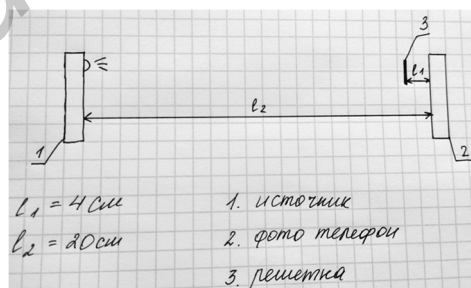 3
l₁
l₂
1
2
l₁ = 4 см
l₂ = 20 см
1. источник
2. фото телефон
3. решетка